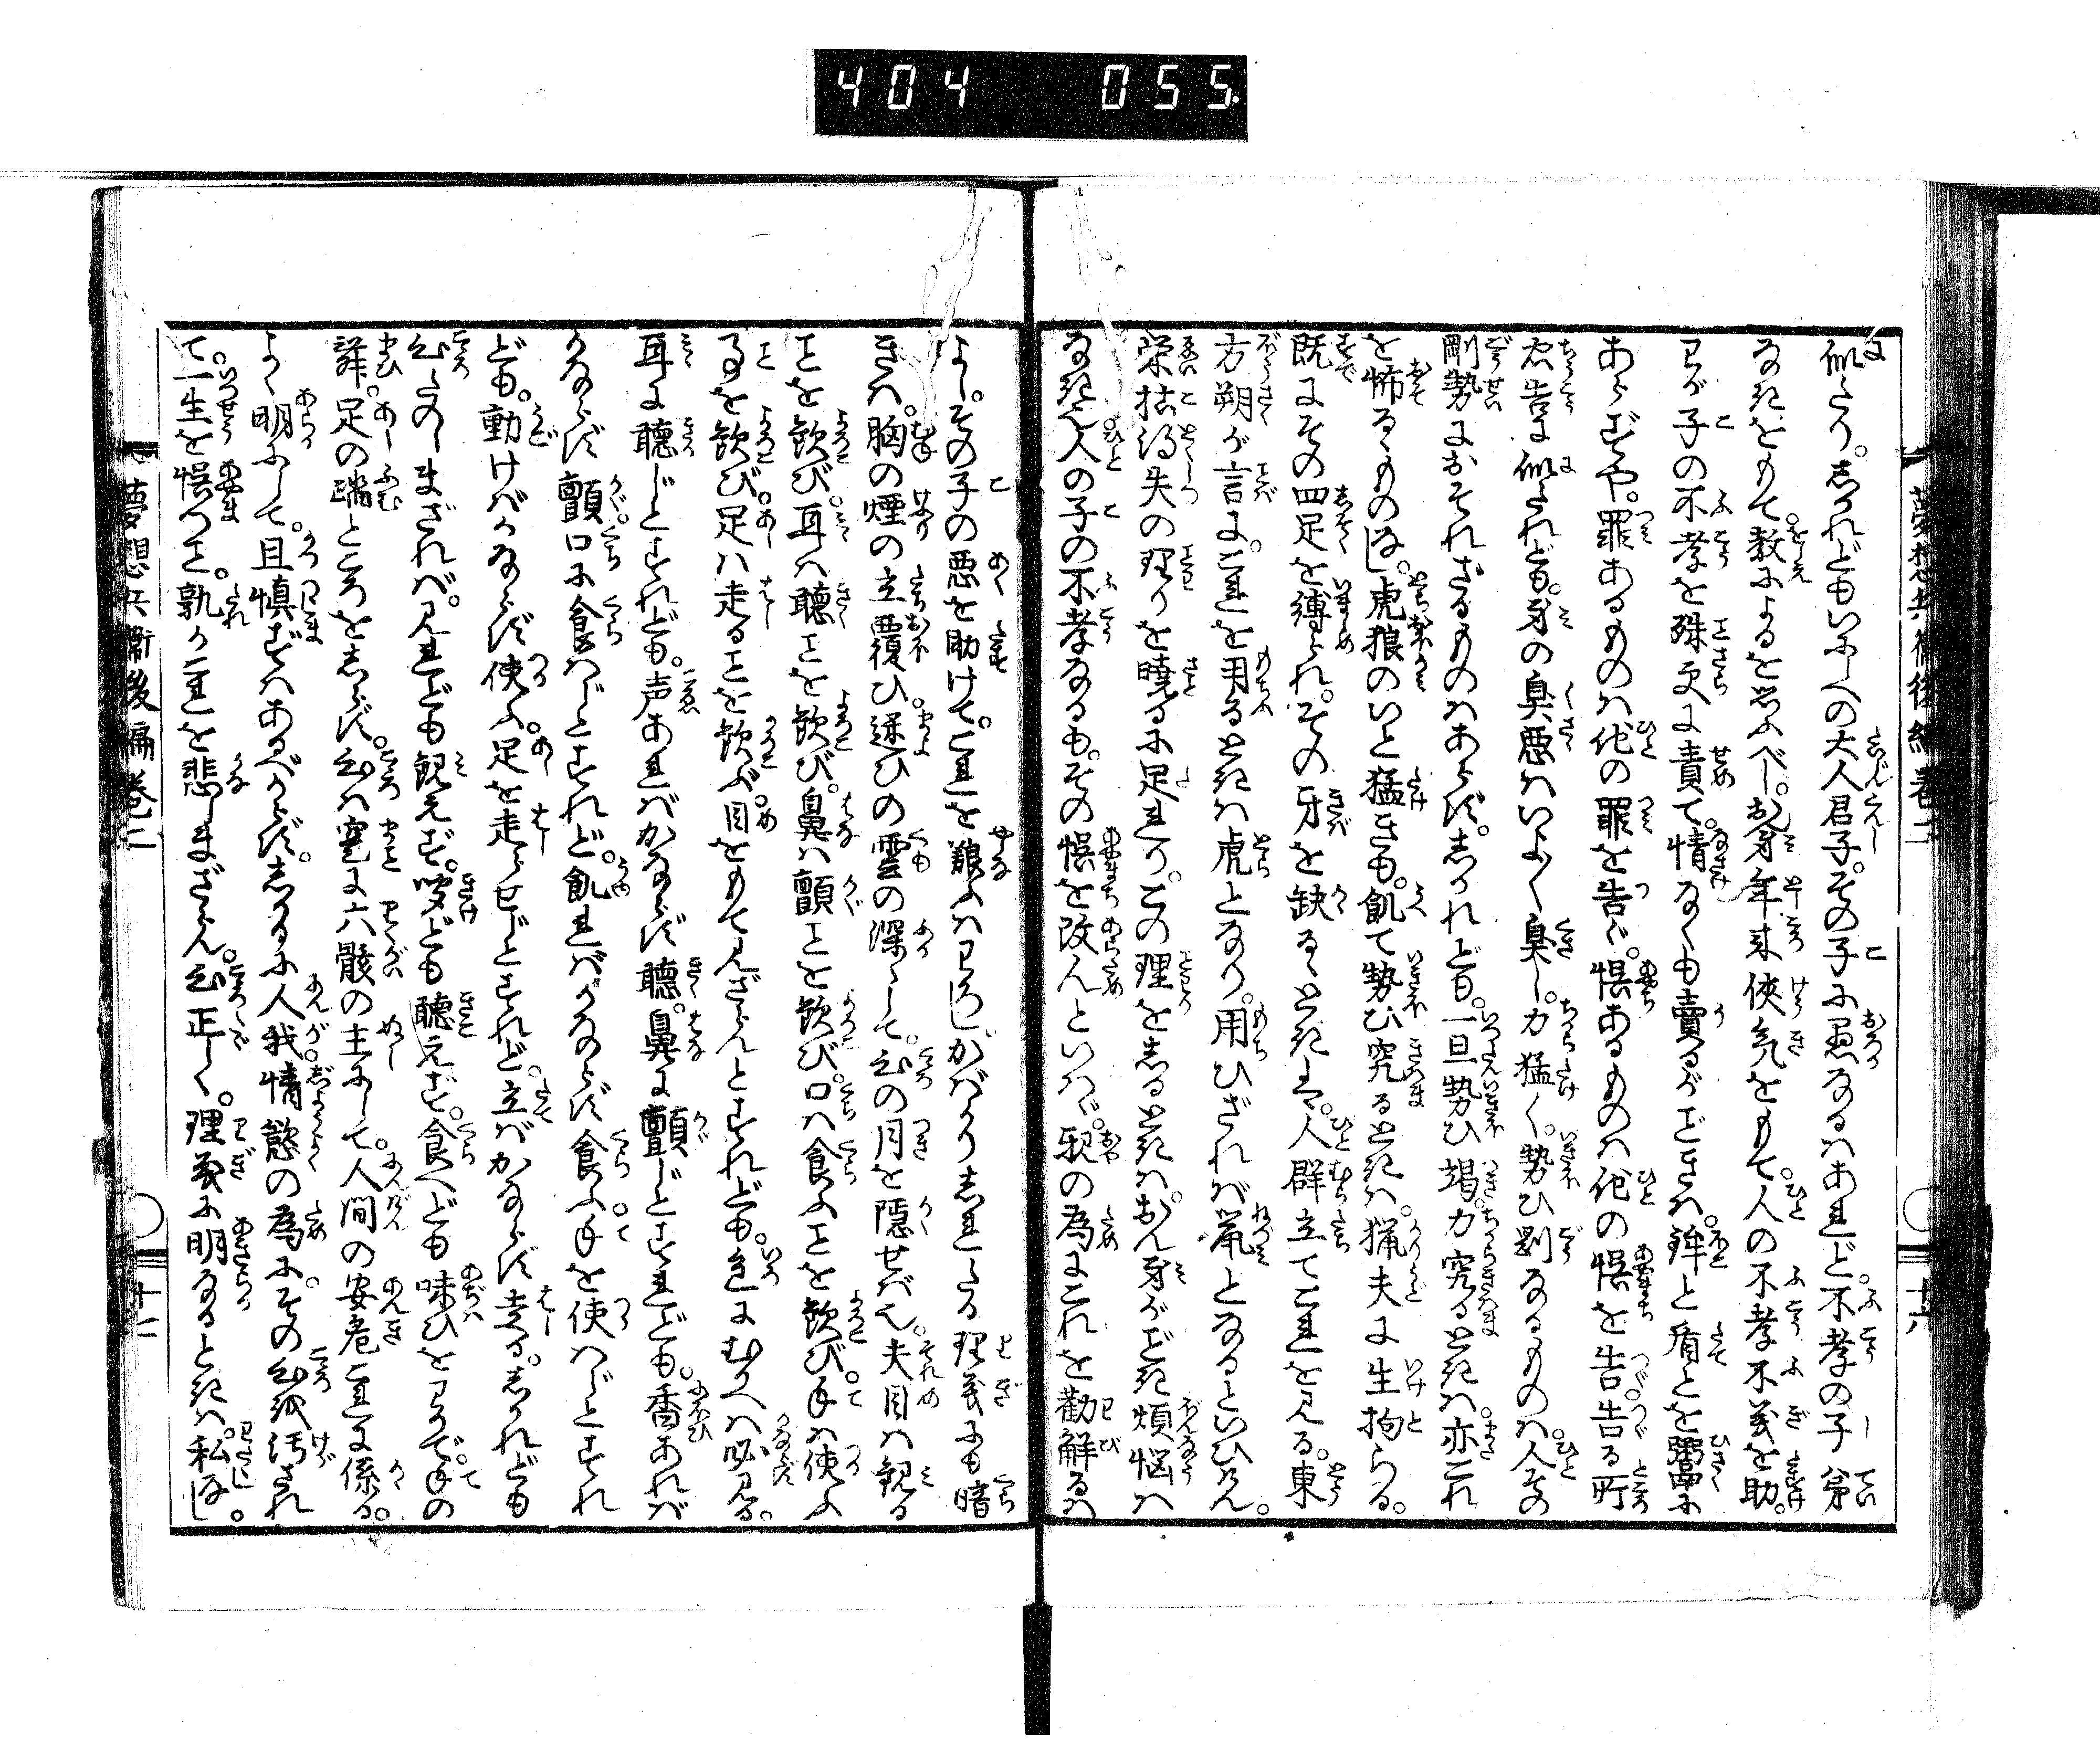 404 055
夢想兵衛後編巻二
十六
似たり。しかれどもいにしへの大人君子。その子に愚なるはあれど。不孝の子弟
なきをもて。教によるを思ふべし。おん身年来侠気をもて。人の不孝不義を助。
わが子の不孝を殊更に責て。情なくも賣るがごときは。鉾と盾とを鬻に
あらずや。罪あるものは他の罪を告ず。悞あるものは他の悞を告ず。告る所
忠告に似たれども。身の臭悪はいよ〳〵臭し。力猛く。勢ひ剛なるものは。人その
剛勢におそれざるものはあらず。しかれども。一旦勢ひ竭。力究るときは。亦これ
を怖るゝものなし。虎狼のいと猛きも。飢て勢ひ究るときは。猟夫に生拘らる。
既にその四足を縛られ。その牙を缺るゝときは。人群立てこれを見る。東
方朔が言に。これを用るときは虎となり。用ひざれば鼠となるといひけん。
栄枯得失の理りを暁るに足れり。この理をしるときは。おん身がごとき煩悩は
なきぞや。人の子の不孝なるも。その悞を改んといはゞ。親の為にこれを勸解るは
よし。その子の悪を助けて。これを親ふはわろし。かばかりしれたる理義にも暗
きは。胸の煙の立覆ひ。迷ひの雲の深くして。心の月を隠せばや。夫目は観る
ことを歓び。耳は聴ことを歓び。鼻は顫ことを歓び。口は食ふことを歓び。手は使ふ
ことを歓び。足は走ることを歓ぶ。目をもて見ざらんとすれども。色にむかへは必見る。
耳に聴じとすれども。声あればかならず聴。鼻に顫じとすれども。香あれば
かならず顫。口に食はじとすれど。飢ればかならず食ふ。手を使はじとすれ
ども。動けばかならず使ふ。足を走らせじとすれど。立ばかならず走る。しかれども
心たのしまざれば。見れども観えず。聞ども聴えず。食へども味ひをわかで。手の
舞。足の踏ところをしらず。心は寔に六骸の主にして。人間の安危これに係る。
よく明にして。且慎ずはあるべからず。しかるに人我情慾の為に。その心を汚され
て。一生を悞つこと。孰かこれを悲しまざらん。心正しく。理義に明なるときは。私なし。
夢想兵衛後編巻二
十七